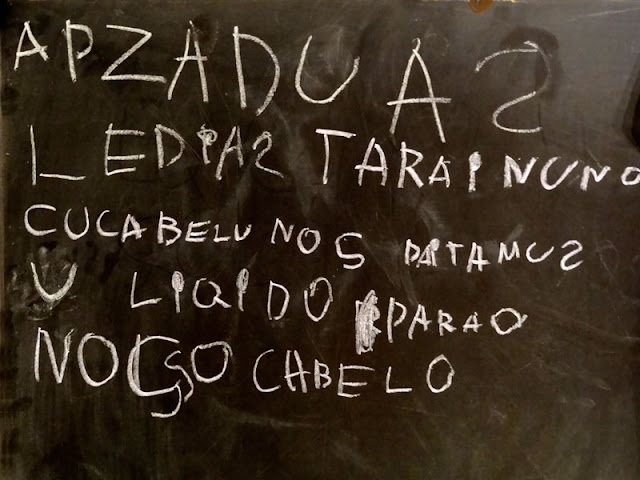 APZADUAS
LEDIAS TARAINUNO
CUCABELU NOS DAITAMUS
U LIQIDO PARAO
NOSO CABELO